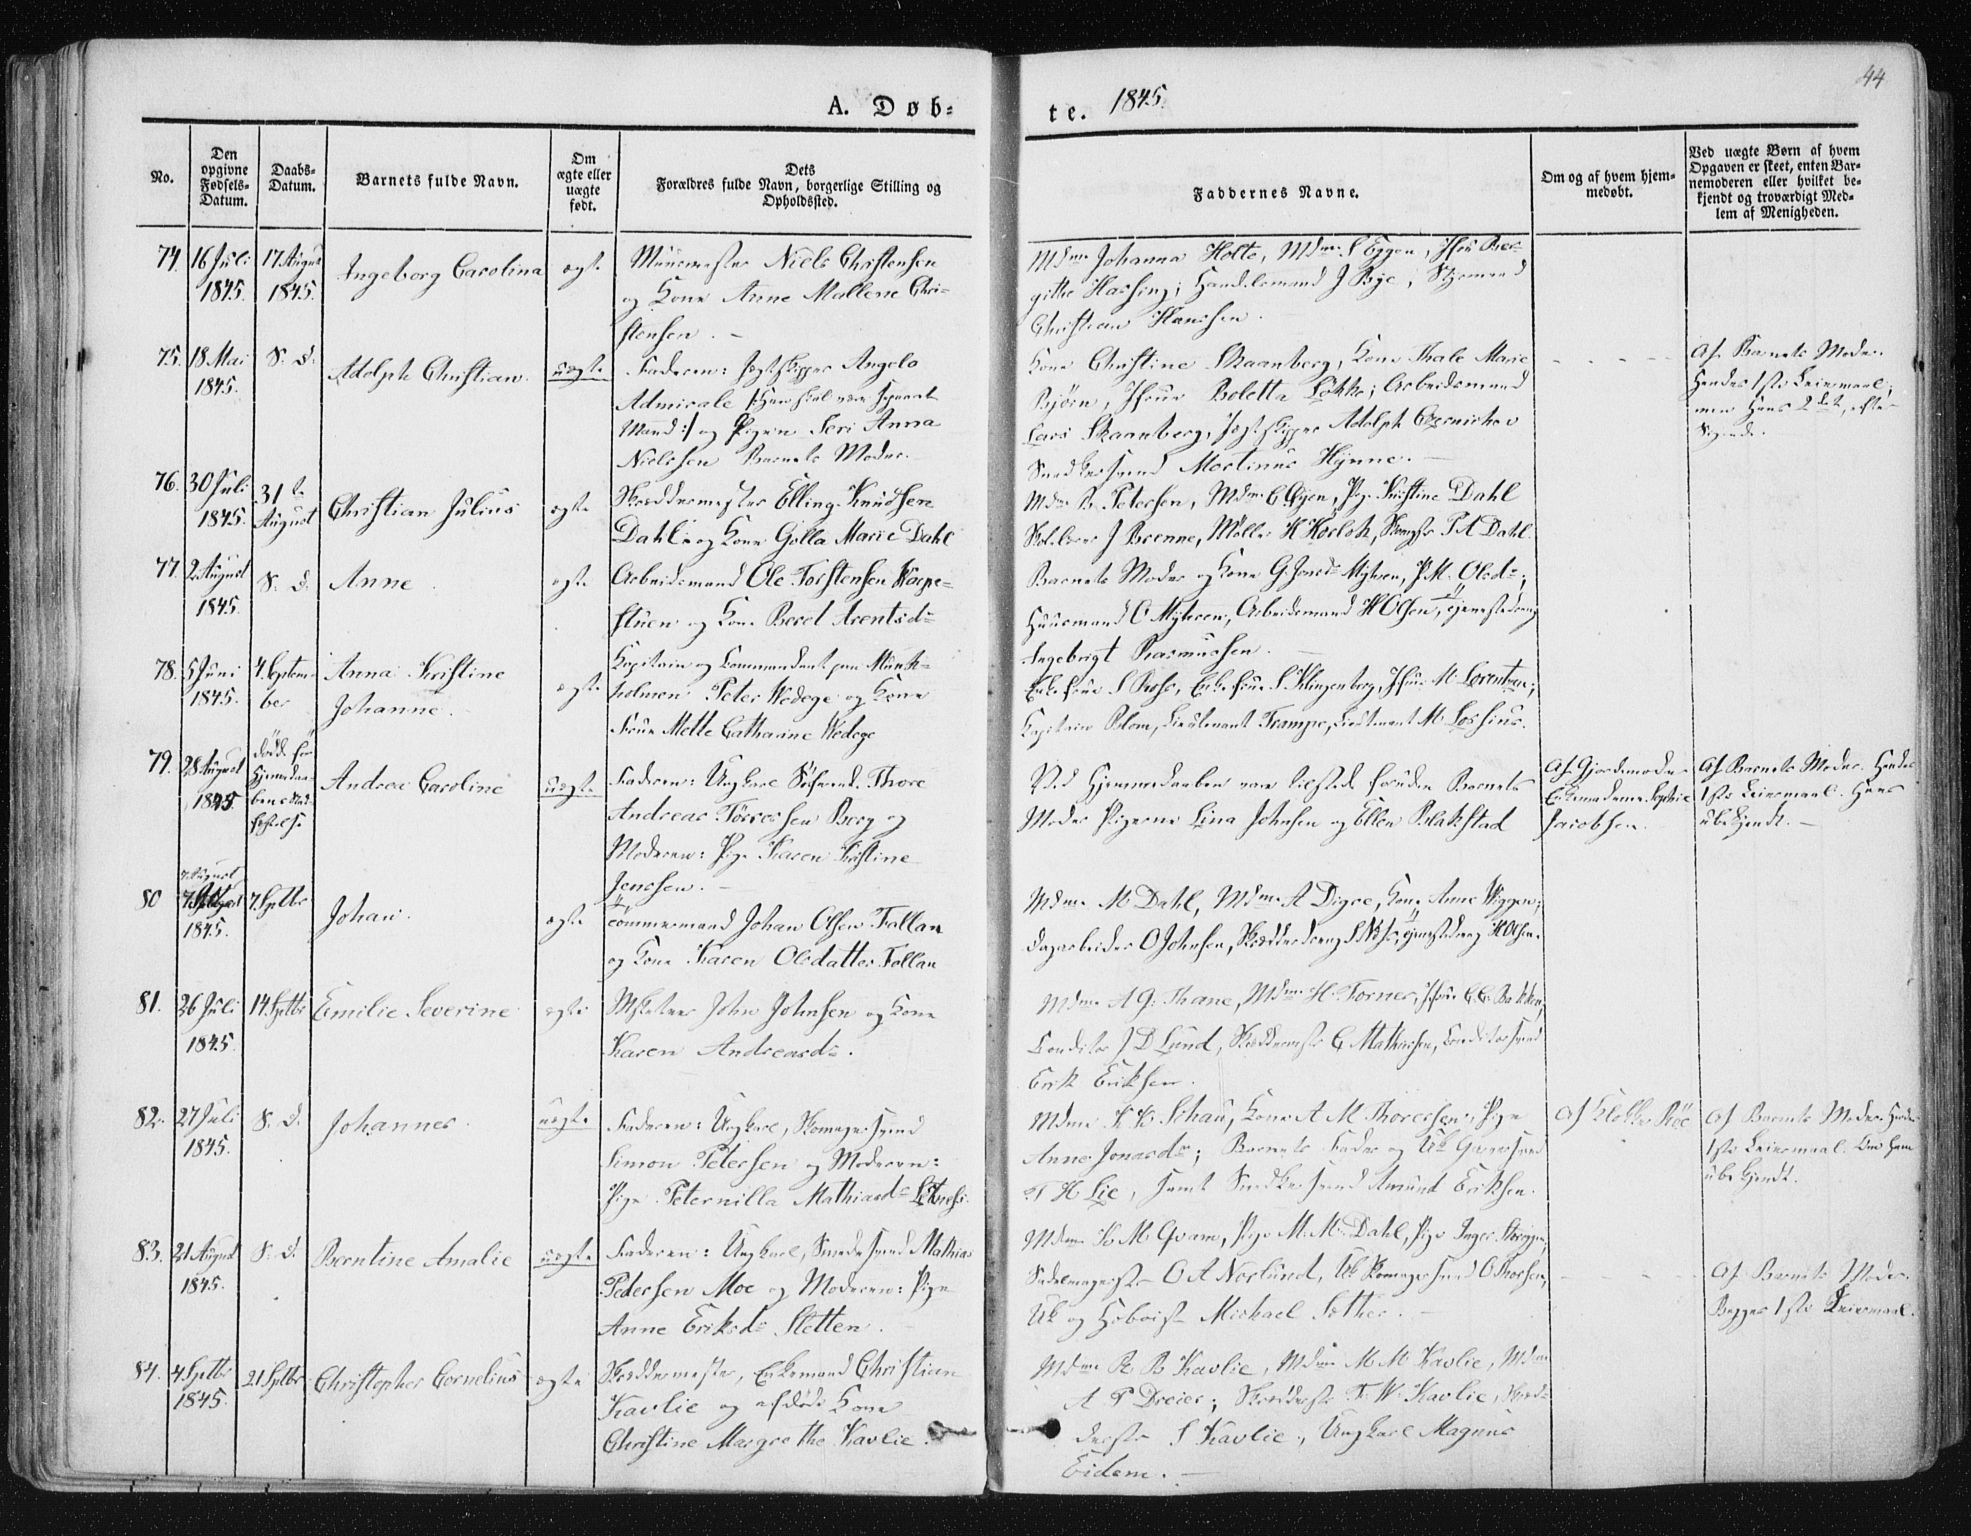 44
A. Døb=
te. 1845.
No.
Den opgivne Fødsels-Datum.
Daabs-Datum.
Barnets fulde Navn.
Om ægte eller uægte født.
Dets
Forældres fulde Navn, borgerlige Stilling og
Opholdssted.
Faddernes Navne.
Om og af hvem hjem-
medøbt.
Ved uægte Børn af hvem
Opgaven er skeet, enten Bar-
nemoderen eller hvilket be-
kjendt og troværdigt Med-
lem af Menigheden.
74. 16 Juli 1845. 17 August 1845. Ingeborg Carolina ægte
Muurmester Niels Christensen
og Kone Anne Mallene Chri-
stensen.
Mdme Johanna Holte, Mdme S Eggen, Jfru Ber-
githe Hassing; Handelsmand J Bye,
Christian Hansen.
75. 18 Mai 1845. S. D. Adolph Christian. uægte
Faderen: Jagtskipper Angelo
Admirale
Mand:/ og Pigen Seri Anna
Nielssen Barnets Moder.
Kone Christine Skaanberg, Kone Thale Marie
Bjørn, Jfrue Boletta Løkke; Arbeidsmand
Lars Skaanberg, Jagtskipper Adolph
Snedkersvend Mortinus Hynne.
Af Barnets Moder.
Hendes 1ste Leiermaal,
men Hans 2det, efter
Sigende.
76. 30 Juli 1845. 31te August Christian Julius ægte
Skræddermester Elling Knudsen
Dahl og Kone Golla Marie Dahl
Mdme B Petersen, Mdme C Øyen, Pige Kristine Dahl
J Brenne, Møller H P A Dahl.
77. 2 August 1845. S. D. Anne. ægte
Arbeidsmand Ole Torstensen
stuen og Kone Beret Arentsdr
Barnets Moder og Kone G. Jonsdr Myhren, P. M. Olsdr;
Huusmand O Myhren, Arbeidsmand H Olsen, Tjenestedreng
Ingebrigt Rasmussen.
78. 5 Juni 1845. 4. Septem-ber Anna Kristine Johanne. ægte
Kapitain og Commandant paa Munk-
holmen Peter Wedege og Kone
Frue Mette Catharine Wedege
Enkefrue S Enkefrue S Klingenberg, Jfrue M. Lorentzen;
Kapitain Blom, Lieutenant Trampe, Lieutenant M. Lossius.
79. 28 August 1845 døde før Hjemmedaa-bens Stad-fæstelse Andrea Caroline uægte
Faderen: Ungkarl Søfarende Thore
Andreas Tørressen Berg og
Moderen: Pige Karen Kristine
Jenssen.
Ved Hjemmedaaben vare tilstede foruden Barnets
Moder Pigerne Lina Johnsen og Ellen Blakstad
Af Gjordemoder
Enkemadame Sophie
Jacobsen.
Af Barnets Moder. Hendes
1ste Leiermaal. Hans
ubekjendt.
80 7 August 1845. 7. Septbr Johan. ægte
Tømmermand Johan Olsen Follan
og Kone Karen Olsdatter Follan
Mdme M Dahl, Mdme A Digre, Kone Anne Wiggen;
Dagarbeider O Johnsen, Skrædderdreng Tjenestedreng H Olsen.
81. 26 Juli 1845 14. Septbr Emilie Severine ægte
John Johnsen og Kone
Karen Andreasdr.
Mdme A G. Thane, Mdme H. Torner, Jfrue C. C. Bakken,
Conditor J D Lund, C Mathisen, Conditorsvend
Erik Eriksen.
82. 27 Juli 1845. S. D. Johannes. uægte
Faderen: Ungkarl, Skomagersvend
Simon Petersen og Moderen:
Pige Peternilla Mathiasdr
Mdme K K Schau, Kone A M Thoresen, Pige
Anne Jonasdr; Barnets Fader og
T H Lie, samt Snedkersvend Amund Eriksen.
Af Klokker Røe
Af Barnets Moder. Hendes
1ste Leiermaal. Om Ham
ubekjendt.
83. 21 August 1845. S. D. Berntine Amalie uægte
Faderen: Ungkarl, Smedesvend Mathias
Petersen Moe og Moderen: Pige
Anne Eriksdr Sletten.
Mdme K M Qvam, Pige M. M. Dahl, Pige Inger
Sadelmager O A Norlund, Uk Skomagersvend O Thorsen,
Uk og Hoboist Michael Sæther.
Af Barnets Moder.
Begges 1ste Leiermaal.
84. 4 Septbr 1845. 21 Septbr Christopher Cornelius ægte
Skræddermester, Enkemand Christian
Kavlie og afdøde Kone
Christine Margrethe Kavlie.
Mdme R B Kavlie, Mdme M M Kavlie, Mdme
A P Dreier; F. W. Kavlie, Skræd-
S Kavlie, Ungkarl Magnus
Eidem.